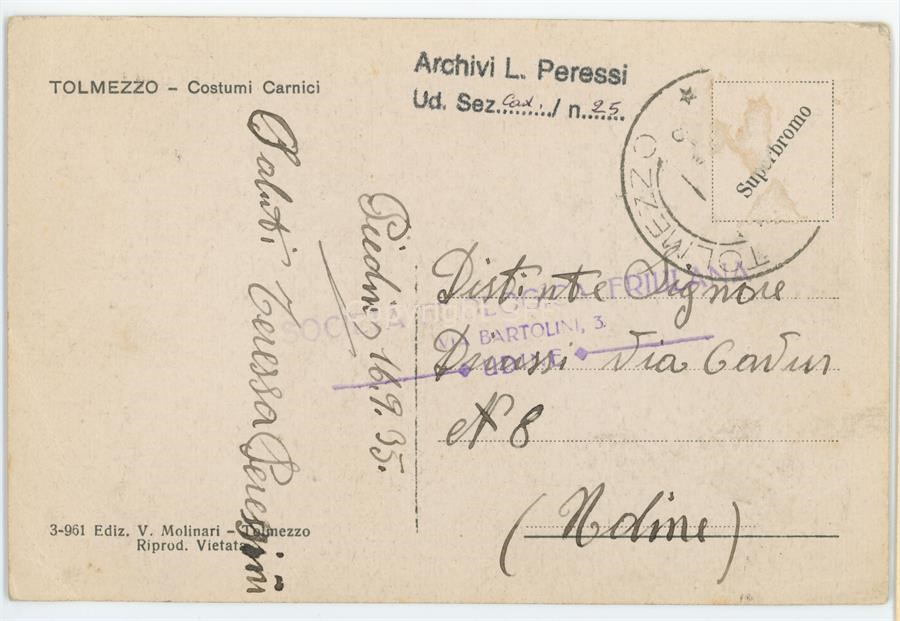 TOLMEZZO – Costumi Carnici
Archivi L. Peressi
Ud. Sez. Cad. / n. 25
Superbromo
TOLMEZZO
Saluti Teressa
Piedim 16.9.35.
Distinte Signore
via Cavour
N 8
(Udine)
SOCIETÀ FILOLOGICA FRIULANA
VIA BARTOLINI, 3.
UDINE
3-961 Ediz. V. Molinari – Tolmezzo
Riprod. Vietata